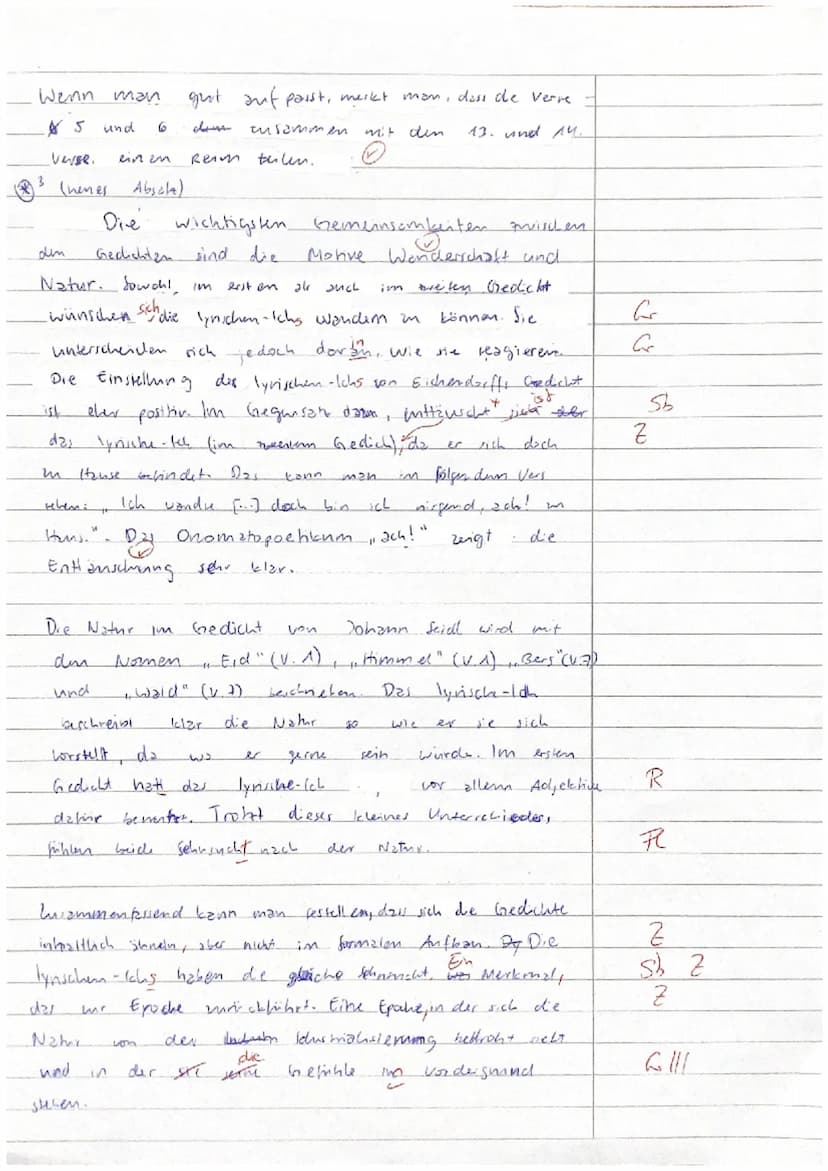 Wenn man gut aufpasst, merkt man, dass die Verse
5 und 6 zusammen mit den 13. und 14.
Verse, einen Reim teilen.
*3 (neues Absatz)
Die wichtigsten Gemeinsamkeiten zwischen
den Gedichten sind die Motive Wanderschaft und
Natur. Sowohl im ersten als auch im zweiten Gedicht
wünschen sich die lyrischen-Ichs wandern zu können. Sie Gr
unterscheiden sich jedoch darin, wie sie reagieren. Gr
Die Einstellung des lyrischen-Ichs von Eichendorffs Gedicht
ist eher positiv. Im Gegensatz dazu, enttäuscht ist Sb
das lyrische-Ich (im zweiten Gedicht), da er sich doch Z
zu Hause befindet. Das kann man im folgenden Vers
sehen: „Ich wandre [...] doch bin ich nirgend, ach! zu
Haus.". Das Onomatopoetikum „ach!" zeigt die
Enttäuschung sehr klar.
Die Natur im Gedicht von Johann Seidl wird mit
den Nomen „Erd" (V. 1), „Himmel" (V. 1) „Berg" (V. 7)
und „Wald" (V. 7) beschrieben. Das lyrische-Ich
beschreibt klar die Natur so wie er sie sich
vorstellt, da wo er gerne sein würde. Im ersten
Gedicht hat das lyrische-Ich, vor allem Adjektive R
dafür benutzt. Trotzt dieses kleines Unterschiedes,
fühlen beide Sehnsucht nach der Natur. Fl
Zusammenfassend kann man festellen, dass sich die Gedichte
inhaltlich ähneln, aber nicht im formalen Aufbau. Die Z
lyrischen-Ichs haben die gleiche Sehnsucht. Ein Merkmal, Sb Z
das zur Epoche zurückführt. Eine Epoche, in der sich die Z
Natur von der Industrialisierung bedroht sieht
und in der die Gefühle im Vordergrund G III
stehen.